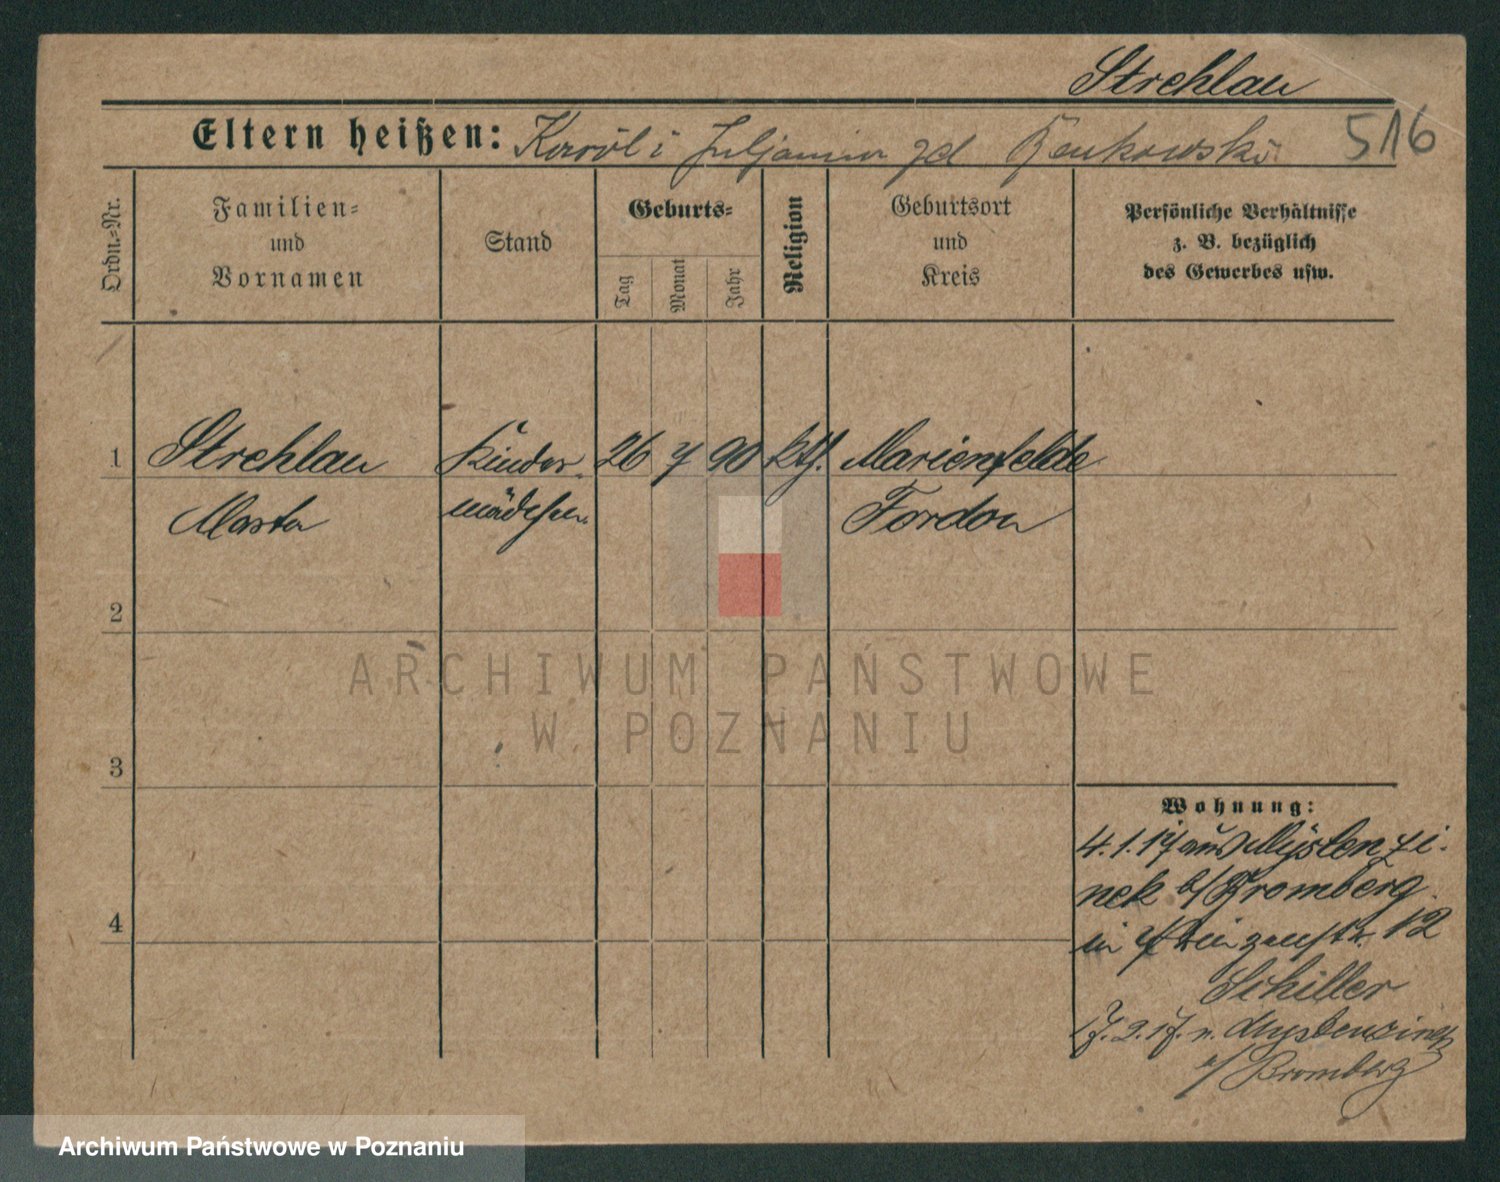 Strehlau
Eltern heißen: Karól i Juljanna gd Benkowski 516
Ordn.=Nr.
Familien=
und
Vornamen
Stand
Geburts=
Tag
Monat
Jahr
Religion
Geburtsort
und
Kreis
Persönliche Verhältnisse
z. B. bezüglich
des Gewerbes usw.
1 Strehlau Kinder- 26 7 90 kth. Marienfelde
Marta mädchen Fordon
2
3
4
ARCHIWUM PAŃSTWOWE
W POZNANIU
Wohnung:
4.1.17 aus Mystenzi-
nek b/Bromberg
in 12
Schiller
17.2.17. n. Mystenzinek
b/Bromberg
Archiwum Państwowe w Poznaniu